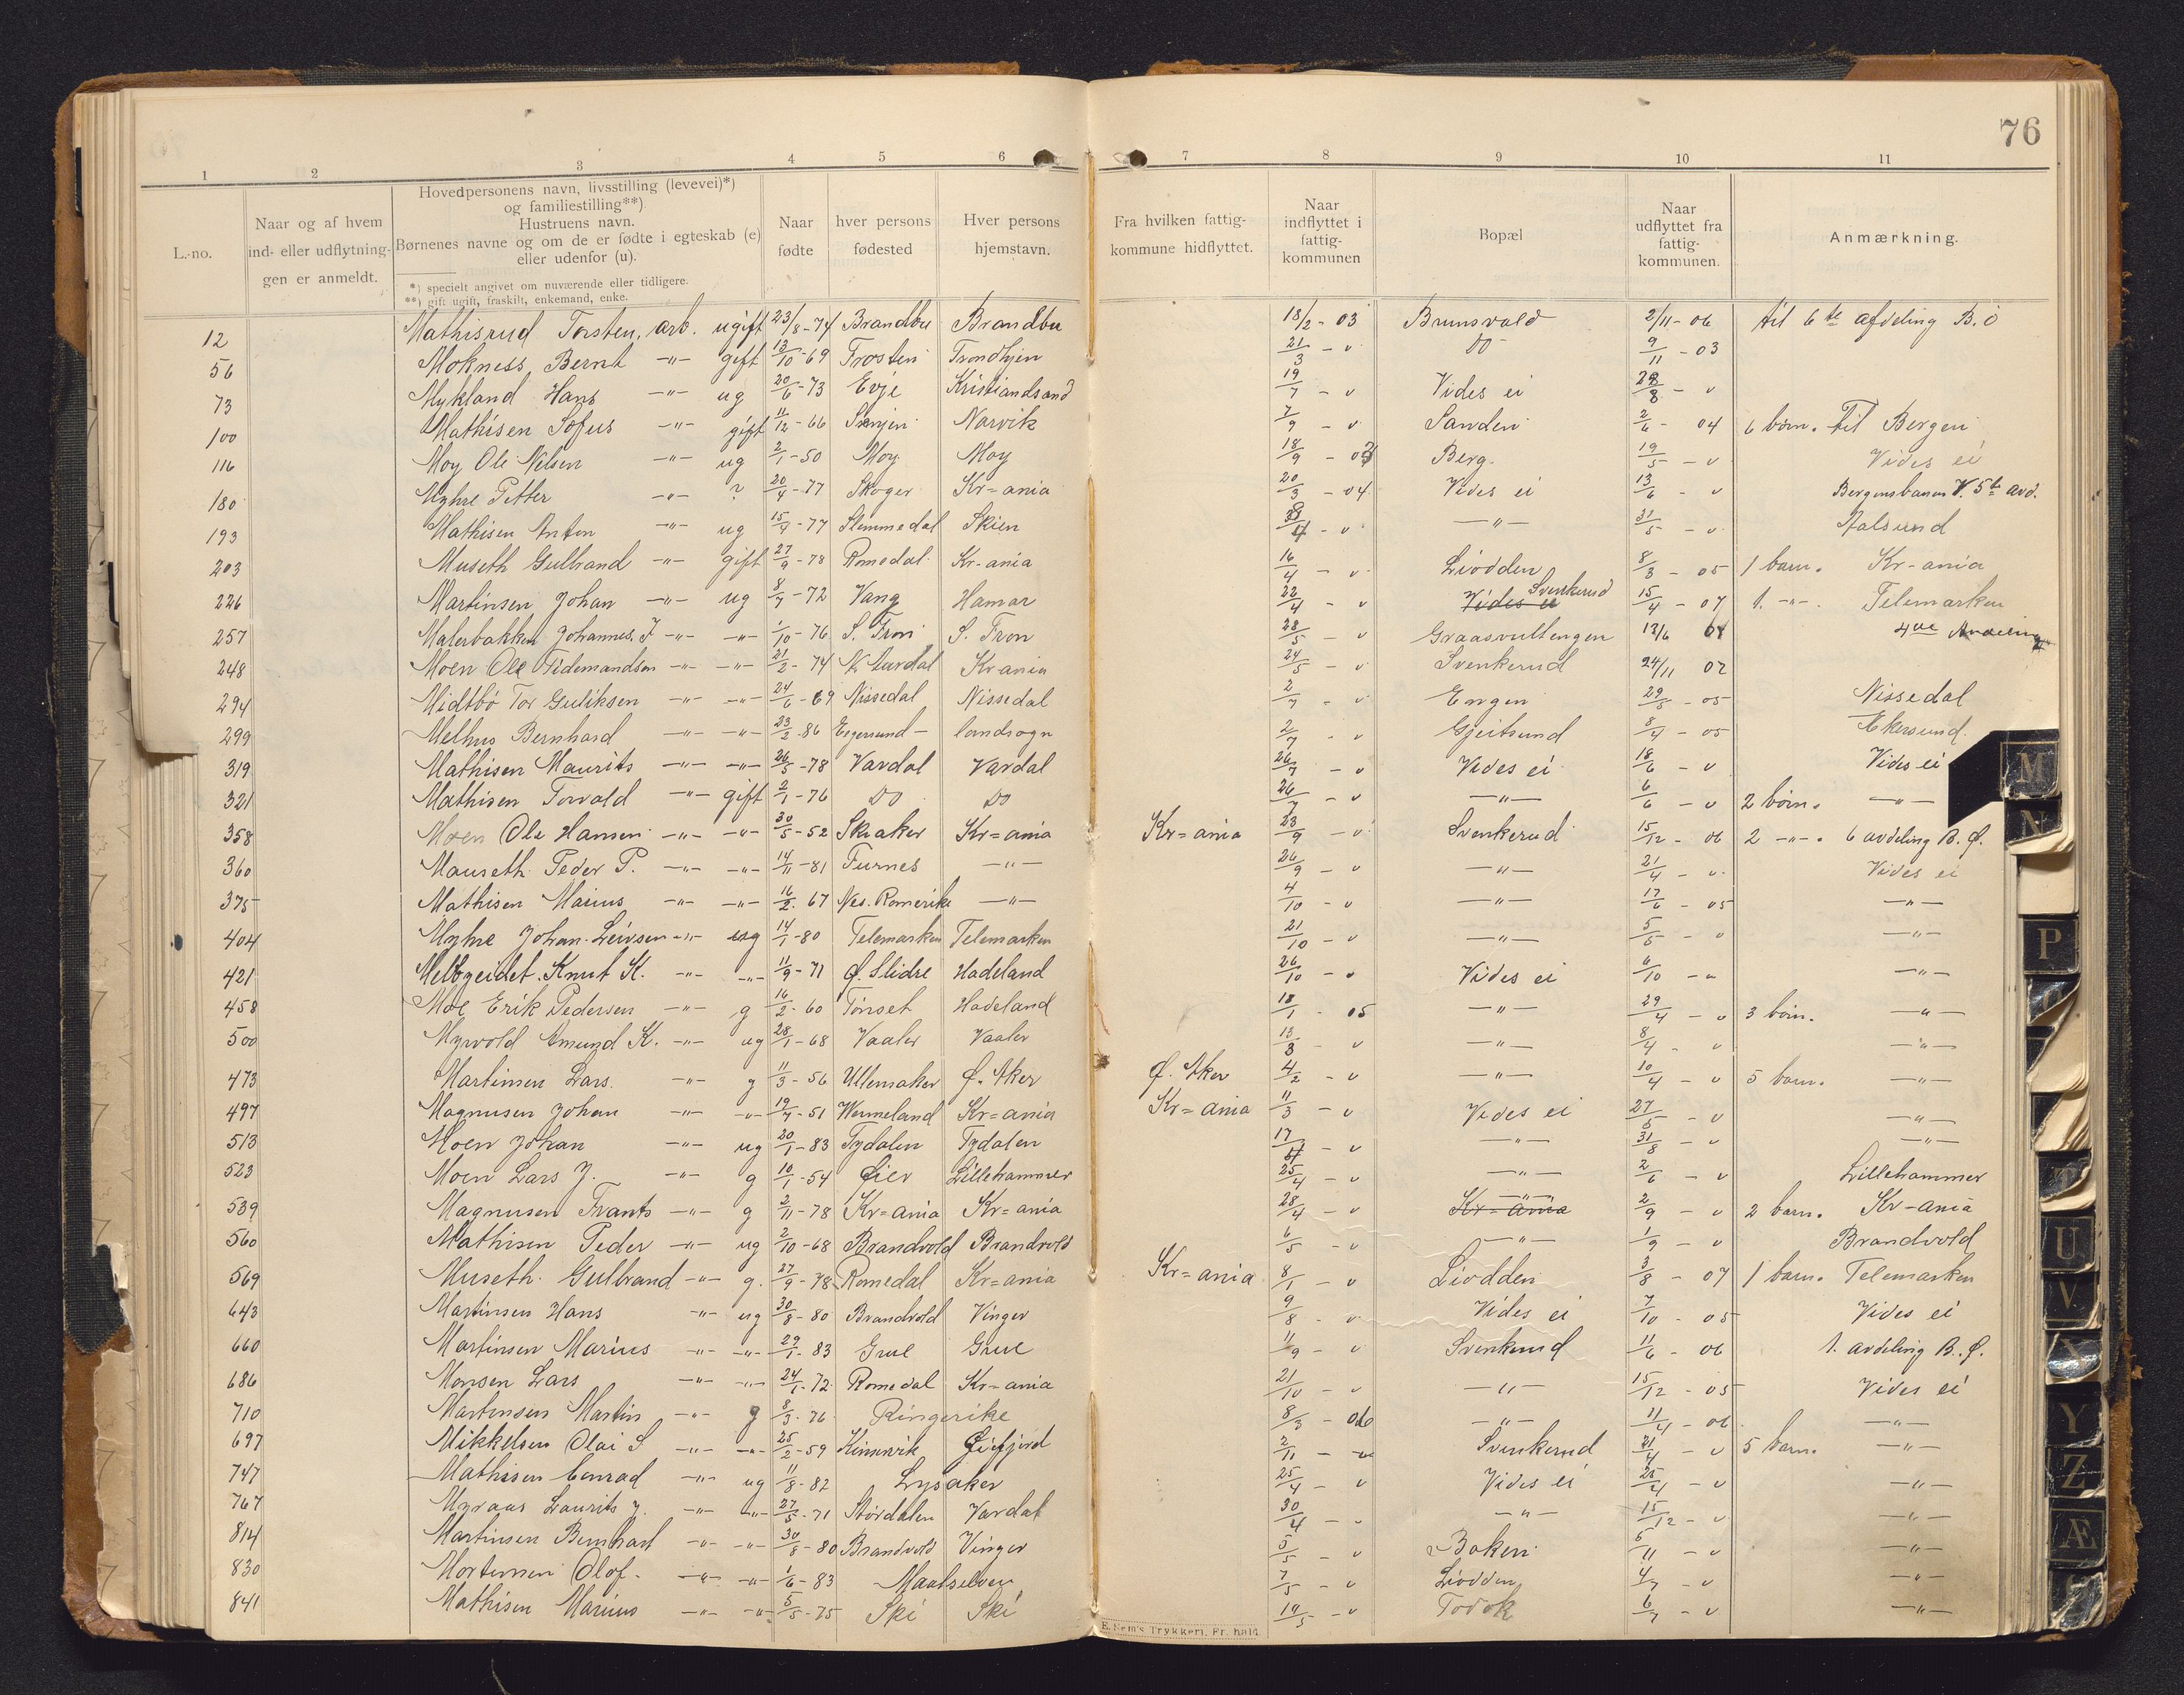 76
1 2 3 4 5 6 7 8 9 10 11
L.-no.
Naar og af hvem ind- eller udflytningen er anmeldt.
Hovedpersonens navn, livsstilling (levevei)*) og familiestilling**)
Hustruens navn.
Børnenes navne og om de er fødte i egteskab (e) eller udenfor (u).
*) specielt angivet om nuværende eller tidligere.
**) gift ugift, fraskilt, enkemand, enke.
Naar fødte
hver persons fødested
Hver persons hjemstavn.
Fra hvilken fattigkommune hidflyttet.
Naar indflyttet i fattigkommunen
Bopæl
Naar udflyttet fra fattigkommunen.
Anmærkning.
12 Mathisrud Torsten, arb. ugift 23/8-74 Brandbu Brandbu 18/2-03 Brunsvold 2/11-06 til 6te afdeling B.ö
56 Mokness Bernt -"- gift 13/10-69 Frosten Trondhjen 21/3 - v do 9/11-03
73 Mykland Hans -"- ug 20/6-73 Evje Kristiandsand 19/7 - v Vides ei 28/8 - v
100 Mathisen Sofus -"- gift 11/12-66 Senjen Narvik 7/9 - v Sanden 2/6 - 04 6 börn. Til Bergen
116 Moy Ole Nilsen -"- ug 2/1-50 Moy Moy 18/9 - 03 Berg. 19/5 - v Vides ei
180 Myhre Petter -"- ? 20/4-77 Skoger Kr=ania 20/3 - 04 Vides ei 13/6 - v Bergensbanen V. 5te avd.
193 Mathisen Anton -"- ug 15/4-77 Slemmedal Skien - v -"- 31/5 - v Aalsund
203 Museth Gulbrand -"- gift 27/9-78 Romedal Kr-ania 16/4 - v Liodden 8/3 - 05 1 barn. Kr-ania
226 Martinsen Johan -"- ug 8/7-72 Vang Hamar 22/4 - v Vides ei Svenkerud 15/4 - 07 1. -"- Telemarken
257 Malerbakken Johannes. J -"- -"- 1/10-76 S. Fron S. Fron 28/5 - v Graasvultengen 13/6 4de Avdeling
248 Moen Ole Tidemandsen -"- -"- 21/2-74 N. Aurdal Kr-ania 24/5 - v Svenkerud 24/11 07
294 Midtbö Tor Guliksen -"- -"- 24/6-69 Nissedal Nissedal 2/7 - v Engen 29/5 - 05 Nissedal
299 Melhus Bernhard -"- -"- 23/2-86 Egersund - landsogn 2/7 - v Gjeitsund 8/4 - 05 Ekersund.
319 Mathisen Maurits -"- -"- 26/5-78 Vardal Vardal 26/7 - v Vides ei 18/6 - v Vides ei
321 Mathisen Torvald -"- gift 2/1-76 do do 26/7 - v -"- 6/6 - v 2 börn. -"-
358 Moen Ole Hansen -"- -"- 30/5-52 Skiaker Kr=ania Kr=ania 23/9 - v Svenkerud 15/12 - 06 2 -"-. 6 avdeling B. Ø.
360 Mauseth Peder P. -"- -"- 14/11-81 Furnes -"- 26/9 - v -"- 21/4 - v. Vides ei
375 Mathisen Marius -"- -"- 16/2-67 Nes. Romerike -"- 4/10 - v -"- 17/6 - 05 -"-
404 Myhre Johan Leivsen -"- ug 14/1-80 Telemarken Telemarken 21/10 - v -"- 5/5 - v -"-
421 Melbyeidet. Knut K. -"- -"- 11/9-71 Ø. Slidre Hadeland 26/10 - v Vides ei 6/10 - v -"-
458 Moe Erik Pedersen -"- g 16/2-60 Tönset Hadeland 18/1 - 05 -"- 29/4 - v 3 börn. -"-
500 Myrvold Amund K. -"- ug 28/1-68 Vaaler Vaaler 13/3 - v -"- 8/4 - v -"-
473 Martinsen Lars. -"- g 11/3-56 Ullensaker Ø. Aker Ø. Aker 4/2 - v -"- 10/4 - v 5 barn. -"-
497 Magnusen Johan -"- -"- 19/7-51 Wermeland Kr=ania Kr=ania 11/3 - v Vides ei 27/5 - v -"-
513 Moen Johan -"- ug 20/1-83 Tydalen Tydalen 17/4 - v -"- 31/8 - v -"-
523 Moen Lars J. -"- g 10/1-54 Öier Lillehammer 25/4 - v -"- 2/6 - v Lillehammer
539 Magnusen Frants -"- g 2/11-78 Kr=ania Kr=ania 28/4 - v Kr-ania -"- 2/9 - v 2 barn. Kr-ania
560 Mathisen Peder -"- ug 2/10-68 Brandvold Brandvold 6/5 - v -"- 1/9 - v Brandvold
569 Museth. Gulbrand -"- g. 27/9-78 Romedal Kr=ania Kr=ania 8/1 - v Liodden 3/8 - 07 1 barn. Telemarken
643 Martinsen Hans -"- ug 30/8-80 Brandvold Vinger 9/8 - v Vides ei 7/10 - 05 Vides ei
660 Martinsen Marius -"- -"- 29/1-83 Grue Grue 11/9 - v Svenkerud 11/6 - 06 1. avdeling B. Ø.
686 Monsen Lars -"- -"- 24/1-72 Romedal Kr-ania 21/10 - v -"- 15/12 - 05 Vides ei
710 Martinsen Martin -"- g 8/3-76 Ringerike 8/3 - 06 -"- 11/4 - 06 -"-
697 Mikkelsen Olai S -"- -"- 25/2-59 Kinnvik Gjefjord 2/11 - v Svenkerud 21/4 - v 5 barn. -"-
747 Mathisen Conrad -"- ug 11/8-82 Lysaker 25/4 - v Vides ei 25/4 - v -"-
767 Myraas Laurits J. -"- -"- 27/5-71 Stördalen Vardal 30/4 - v -"- 15/12 - v -"-
814 Martinsen Bernhart -"- -"- 30/8-80 Brandvold Vinger 5/5 - v Boken 5/11 - v -"-
830 Mortensen Olof. -"- -"- 1/6-83 Maalselven 7/5 - v Liodden 4/7 - v -"-
841 Mathisen Marius -"- -"- 5/5-75 Ski Ski 19/5 - v Todok 6/7 - v -"-
E. Sem's Trykkeri. Fr. hald.
M
N
P
U
V
X
Y
Z
Æ